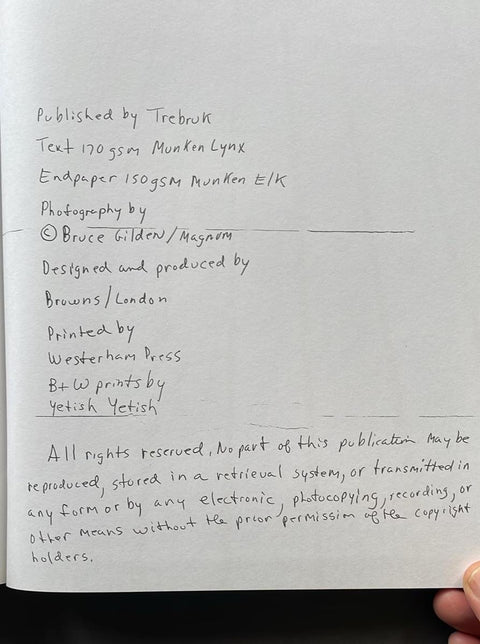 Published by Trebruk
Text 170 gsm Munken Lynx
Endpaper 150gsm Munken E/K
Photography by
© Bruce Gilden/Magnum
Designed and produced by
Browns/London
Printed by
Westerham Press
B+W prints by
Yetish Yetish
All rights reserved. No part of this publication may be
reproduced, stored in a retrieval system, or transmitted in
any form or by any electronic, photocopying, recording, or
other means without the prior permission of the copyright
holders.